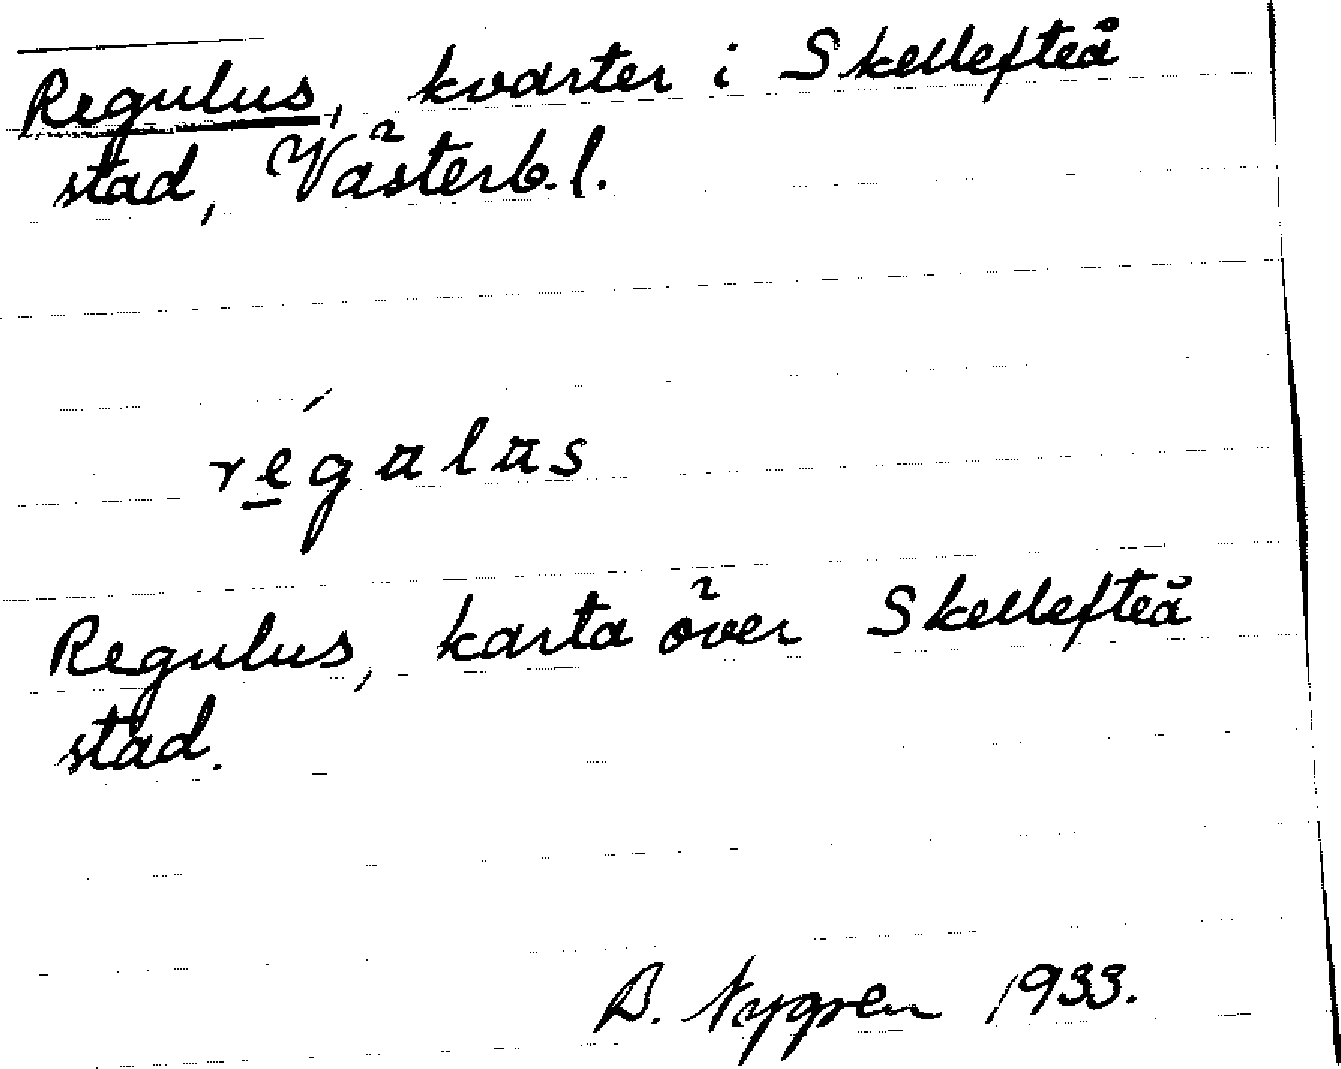 Regulus, kvarter i Skellefteå
stad, Västerb. l.
régulus
Regulus, karta över Skellefteå
stad.
B. Nygren 1933.